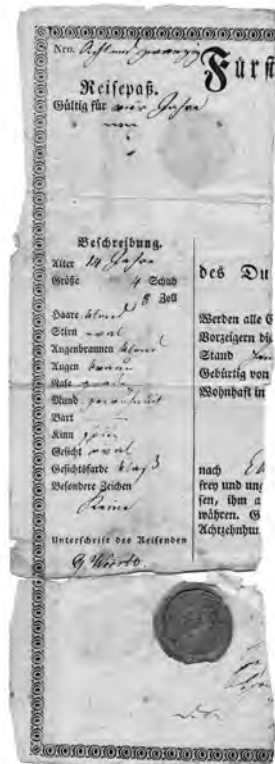 Nro. Acht und zwanzig
Fürst
Reisepaß.
Gültig für vier Jahre
Beschreibung.
Alter 14 Jahre
Größe 4 Schuh
8 Zoll
Haare blond
Stirn oval
Augenbraunen blond
Augen braun
Nase
Mund gewöhnlich
Bart
Kinn spitz
Gesicht oval
Gesichtsfarbe blaß
Besondere Zeichen
Keine
Unterschrift des Reisenden
G Weerth.
des Du
Werden alle C
Vorzeigern die
Stand
Gebürtig von
Wohnhaft in
nach
frey und ung
sen, ihm a
währen. G
Achtzehnhun